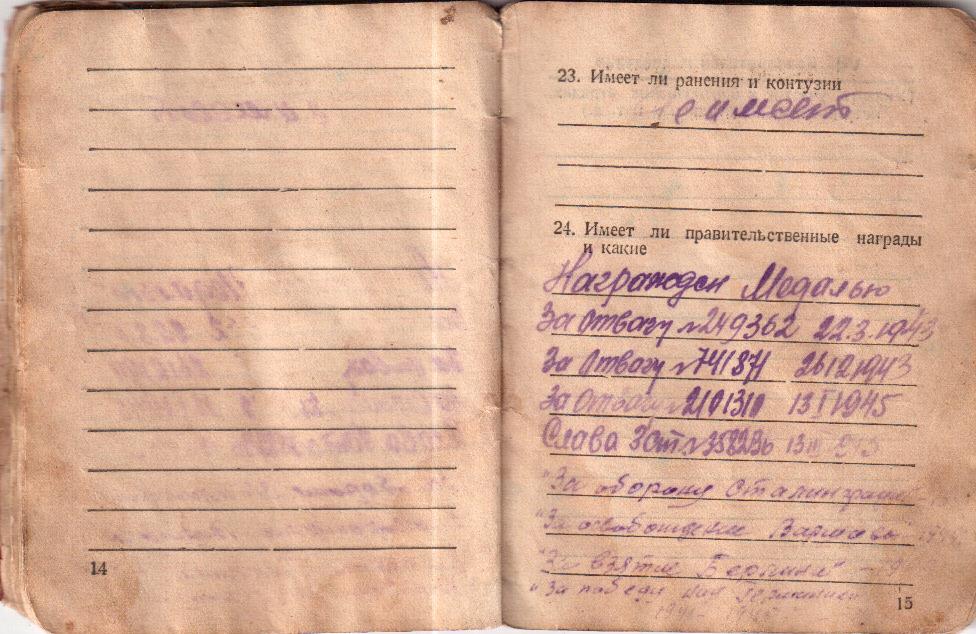 14
23. Имеет ли ранения и контузии
не имеет
24. Имеет ли правительственные награды
и какие
Награжден Медалью
За Отвагу № 249362 22.3.1943
За Отвагу № 741871 26 12 1943
За Отвагу № 2101310 13 I 1945
Слава 3 ст. № 358236 13
"За оборону Сталинграда"
"За освобождение Варшавы"
"За взятие Берлина"
"За победу над Германией
15